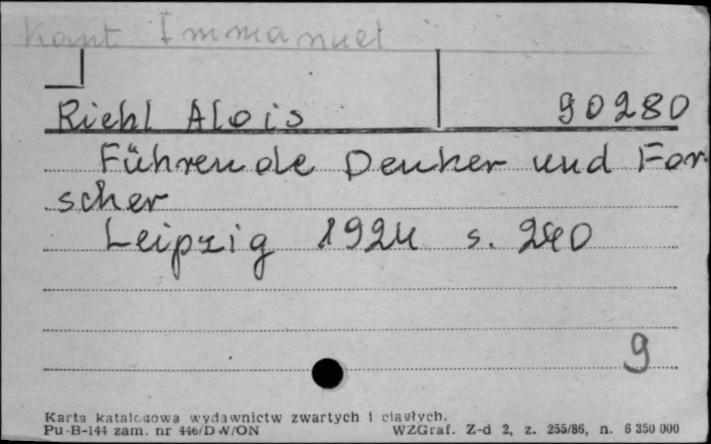 Kant Immanuel
Riehl Alois 90280
Führende Denker und For
scher
Leipzig 1924 s. 240
9
Karta katalogowa wydawnictw zwartych i ciągłych.
Pu-B-144 zam. nr 446/D-W/ON WZGraf. Z-d 2, z. 255/86, n. 6 350 000